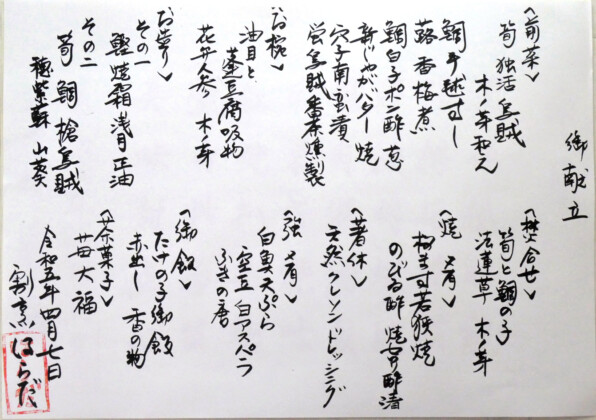 御献立
〈前菜〉
筍 独活 烏賊
木ノ芽和え
鯛手毬すし
蕗香梅煮
鯛白子ポン酢 葱
新じゃがバター焼
穴子南蛮漬
蛍烏賊番茶燻製
〈お椀〉
油目と
蓬豆腐吸物
花弁人参 木ノ芽
〈お造り〉
その一
鰹焼霜 浅月 正油
その二
筍 鯛 槍烏賊
穂紫蘇 山葵
〈焚合せ〉
筍と鯛の子
法蓮草 木ノ芽
〈焼肴〉
桜ます若狭焼
のびる酢 焼野菜酢漬
〈箸休〉
天然クレソンドレッシング
〈強肴〉
白魚天ぷら
空豆 白アスパラ
ふきの唐
〈御飯〉
たけの子御飯
赤出し 香の物
〈茶菓子〉
苺大福
令和五年四月七日
割烹 はらだ